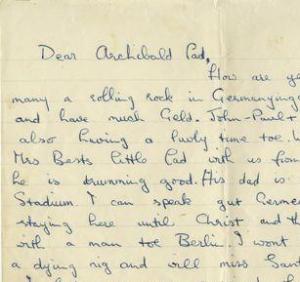 Dear Archibald Cad,
How are ye
many a rolling rock in Germanying
and have much Geld. John-Paul +
also having a hurly time toe. W
Mrs Bests little Cad with us from
he is drumming good. His dad is
Stadium. I can speak gut Germe
staying here until Christ and th
with a man toe Berlin. I wont
a dying nig and will miss Sant